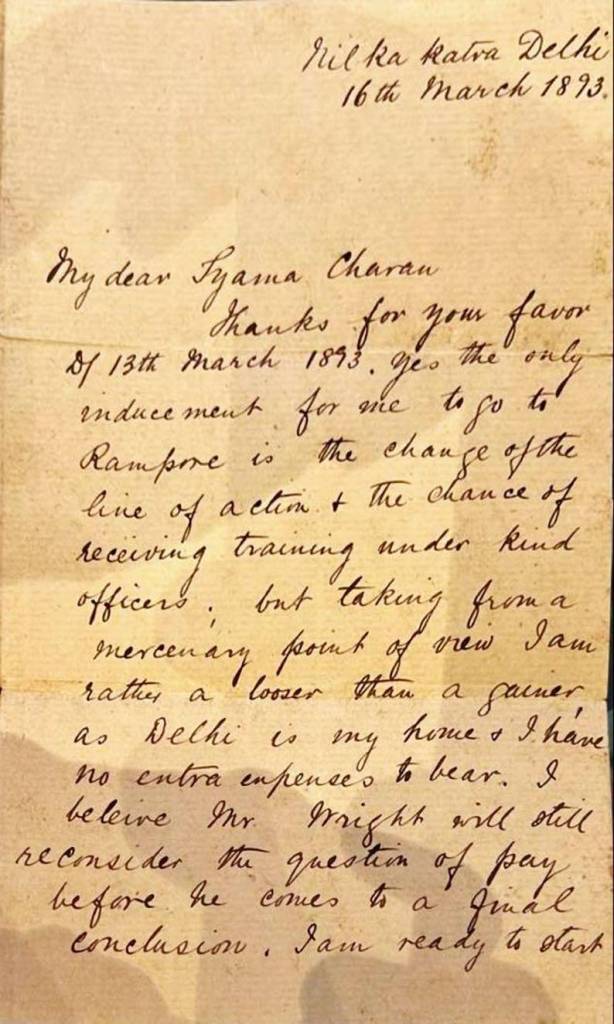 Nil ka katra Delhi
16th March 1893.
My dear Syama Charan
Thanks for your favor
D/ 13th March 1893. yes the only
inducement for me to go to
Rampore is the change of the
line of action & the chance of
receiving training under kind
officers, but taking from a
mercenary point of view I am
rather a looser than a gainer,
as Delhi is my home & I have
no extra expenses to bear. I
beleive Mr. Wright will still
reconsider the question of pay
before he comes to a final
conclusion. I am ready to start